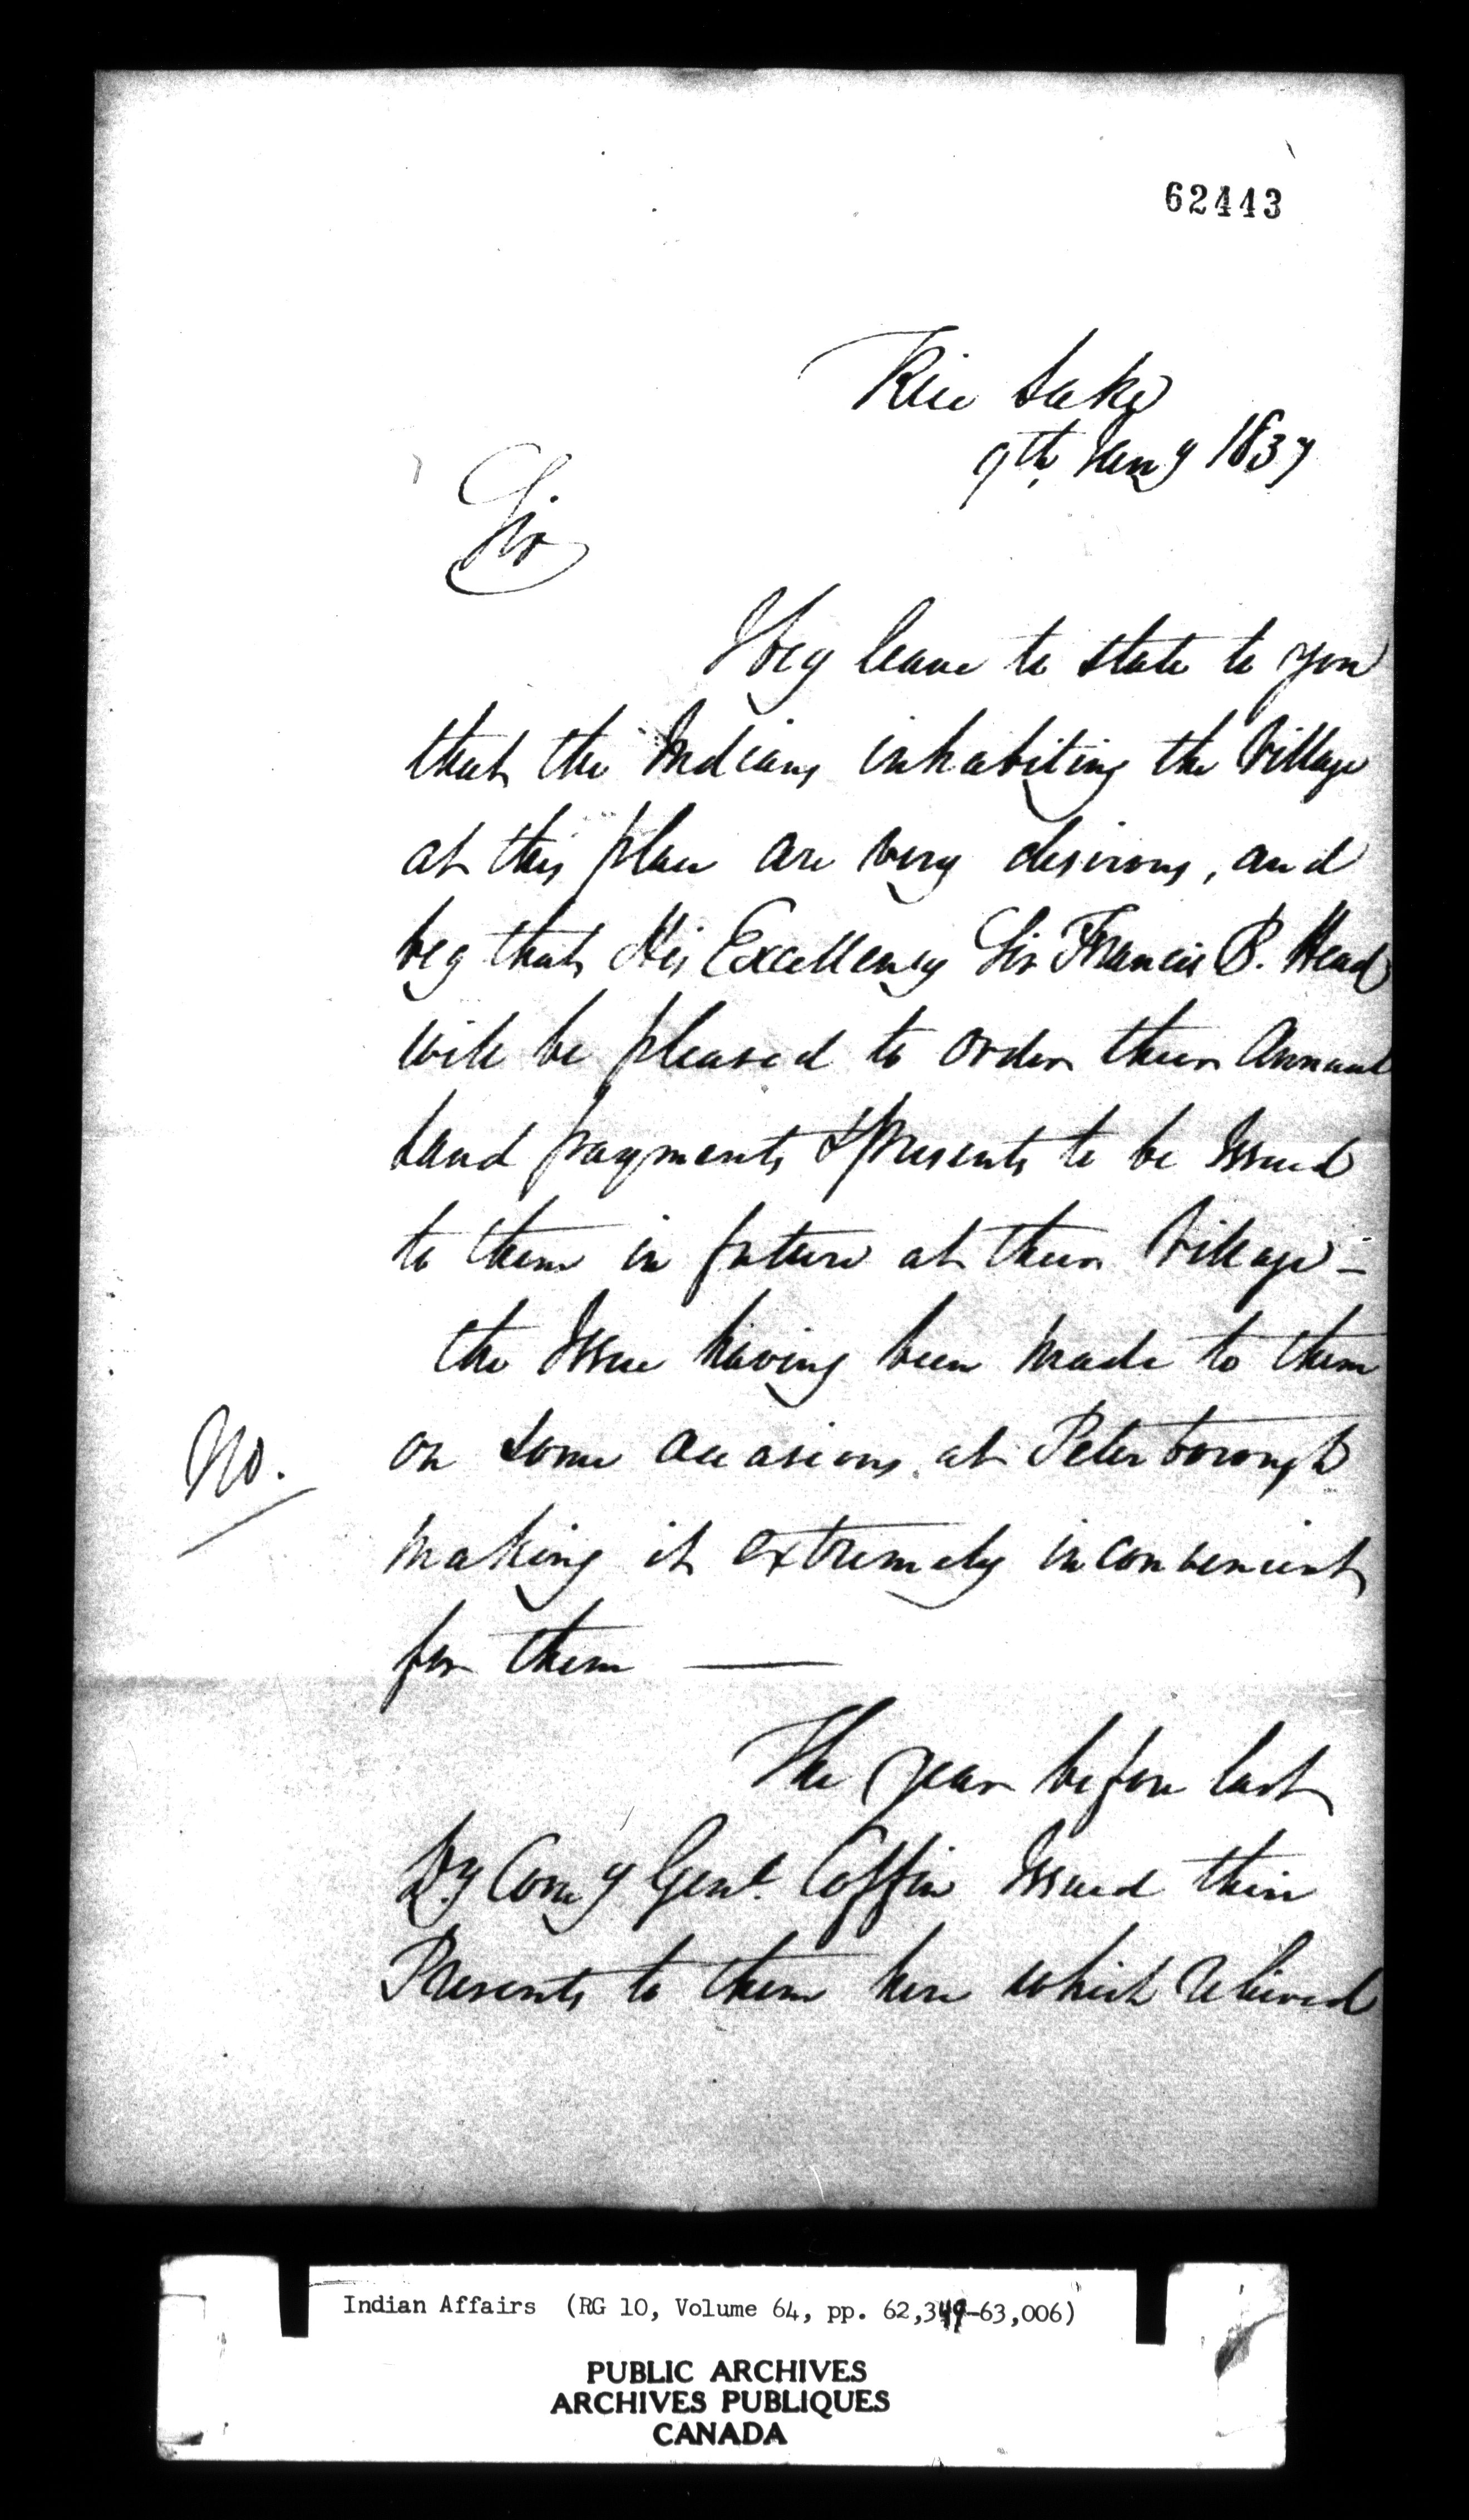 62443
Rice Lake
9th Jany 1837
Sir
I beg leave to state to you
that the Indians inhabiting the Village
at this place are very desirous, and
beg that His Excellency Sir Francis B. Head
will be pleased to order their Annual
Land payments & presents to be Issued
to them in future at their Village –
the Issue having been made to them
on some occasions at Peterborough
No.
making it extremely inconvenient
for them —
The year before last
Dy Comy Genl. Coffin Issued their
Presents to them here which relieved
Indian Affairs (RG 10, Volume 64, pp. 62,349-63,006)
PUBLIC ARCHIVES
ARCHIVES PUBLIQUES
CANADA